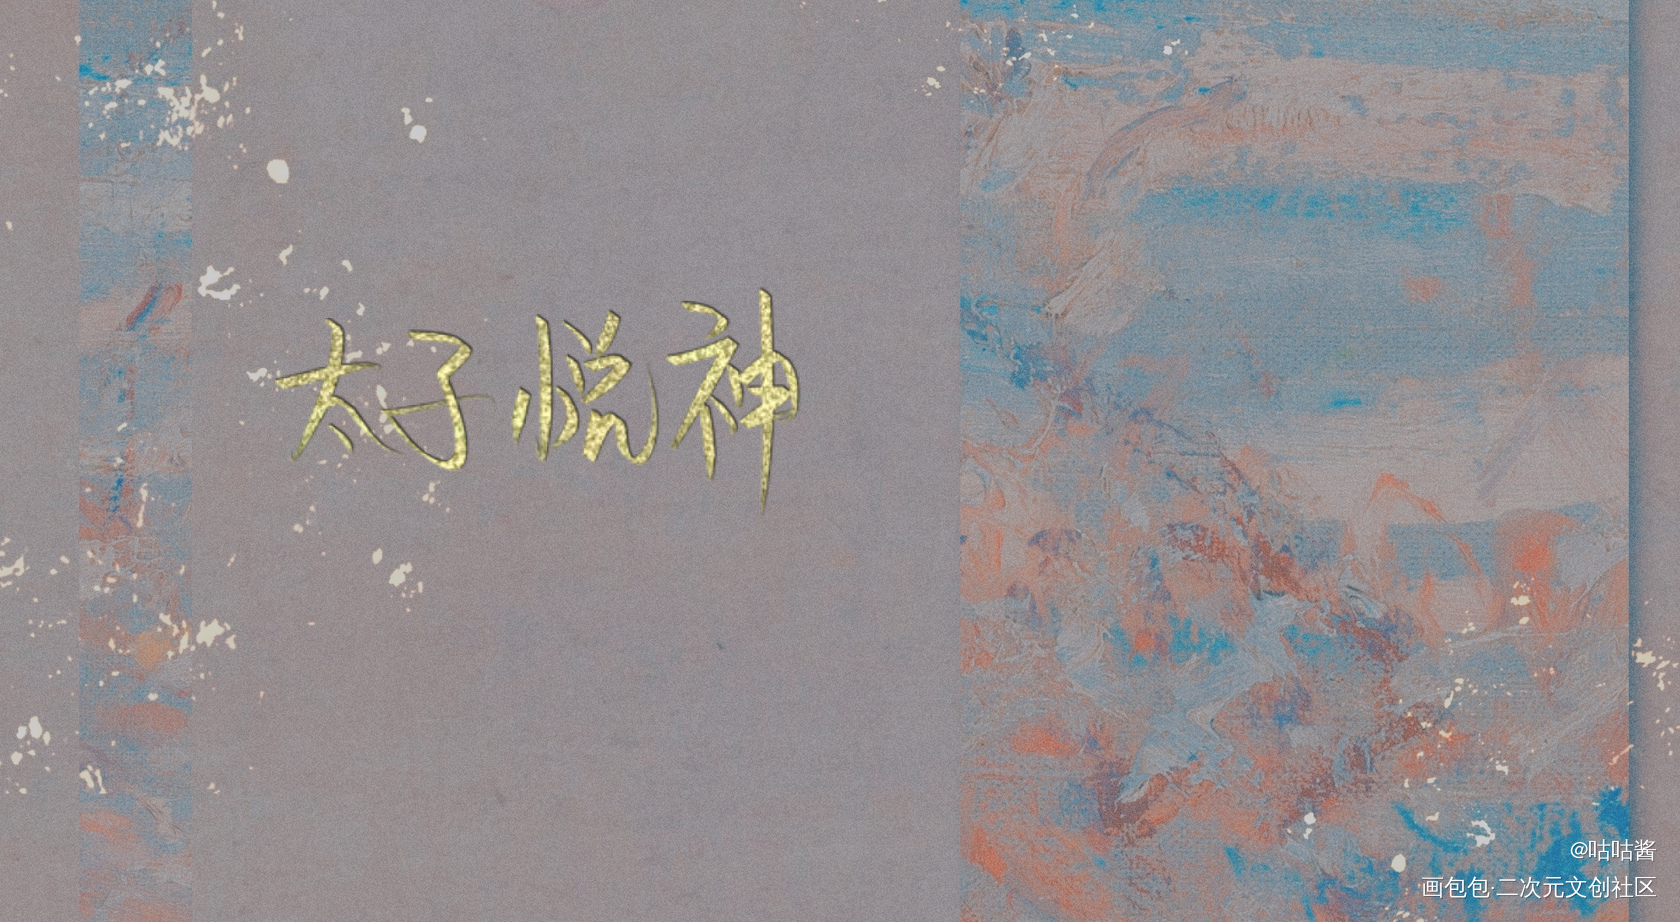 太子悦神
@咕咕酱
画包包·二次元文创社区